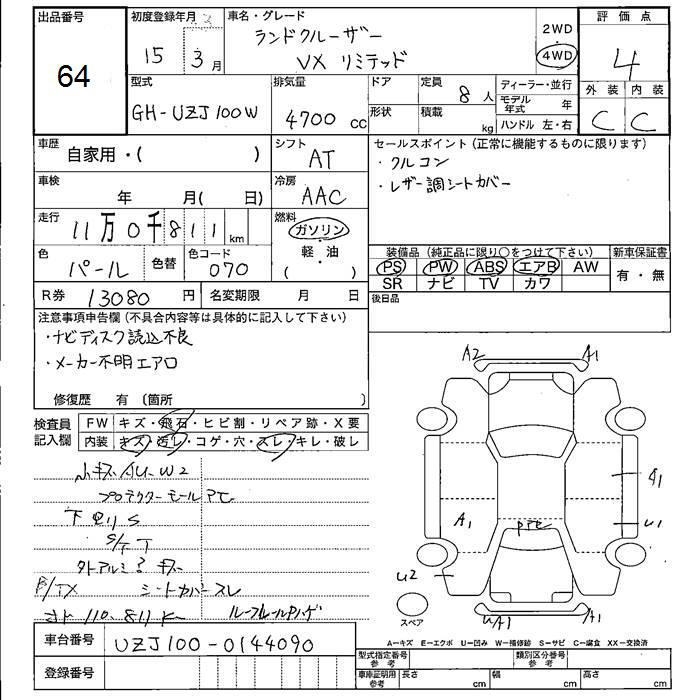 出品番号
64
初度登録年月
15 3月
車名・グレード
ランドクルーザー
VX リミテッド
2WD
4WD
評価点
4
外装 内装
C C
型式
GH-UZJ100W
排気量
4700 cc
ドア
形状
定員
8人
積載
kg
ディーラー・並行
モデル年式 年
ハンドル 左・右
車歴
自家用・( )
シフト
AT
車検
年 月( 日)
冷房
AAC
走行
11万0千811 km
燃料
ガソリン
軽・油
( )
色
パール
色替
色コード
070
R券 13080 円
名変期限 月 日
セールスポイント(正常に機能するものに限ります)
・クルコン
・レザー調シートカバー
装備品(純正品に限り○をつけて下さい)
PS PW ABS エアB AW
SR ナビ TV カワ
新車保証書
有・無
後日品
注意事項申告欄(不具合内容等は具体的に記入して下さい)
・ナビディスク読込不良
・メーカー不明エアロ
修復歴 有(箇所 )
検査員記入欄
FW キズ・飛石・ヒビ割・リペア跡・X要
内装 キズ・汚レ・コゲ・穴・スレ・キレ・破レ
W2
プロテクターモール
下 S
シートカバースレ
110.811
A2 A1
A1
U1
A1
U2
U/A1 A1
スペア
A-キズ E-エクボ U-凹み W-補修跡 S-サビ C-腐食 XX-交換済
車台番号 UZJ100-0144090
登録番号
型式指定番号 参考
類別区分番号 参考
車庫証明用 参考
長さ cm
幅 cm
高さ cm